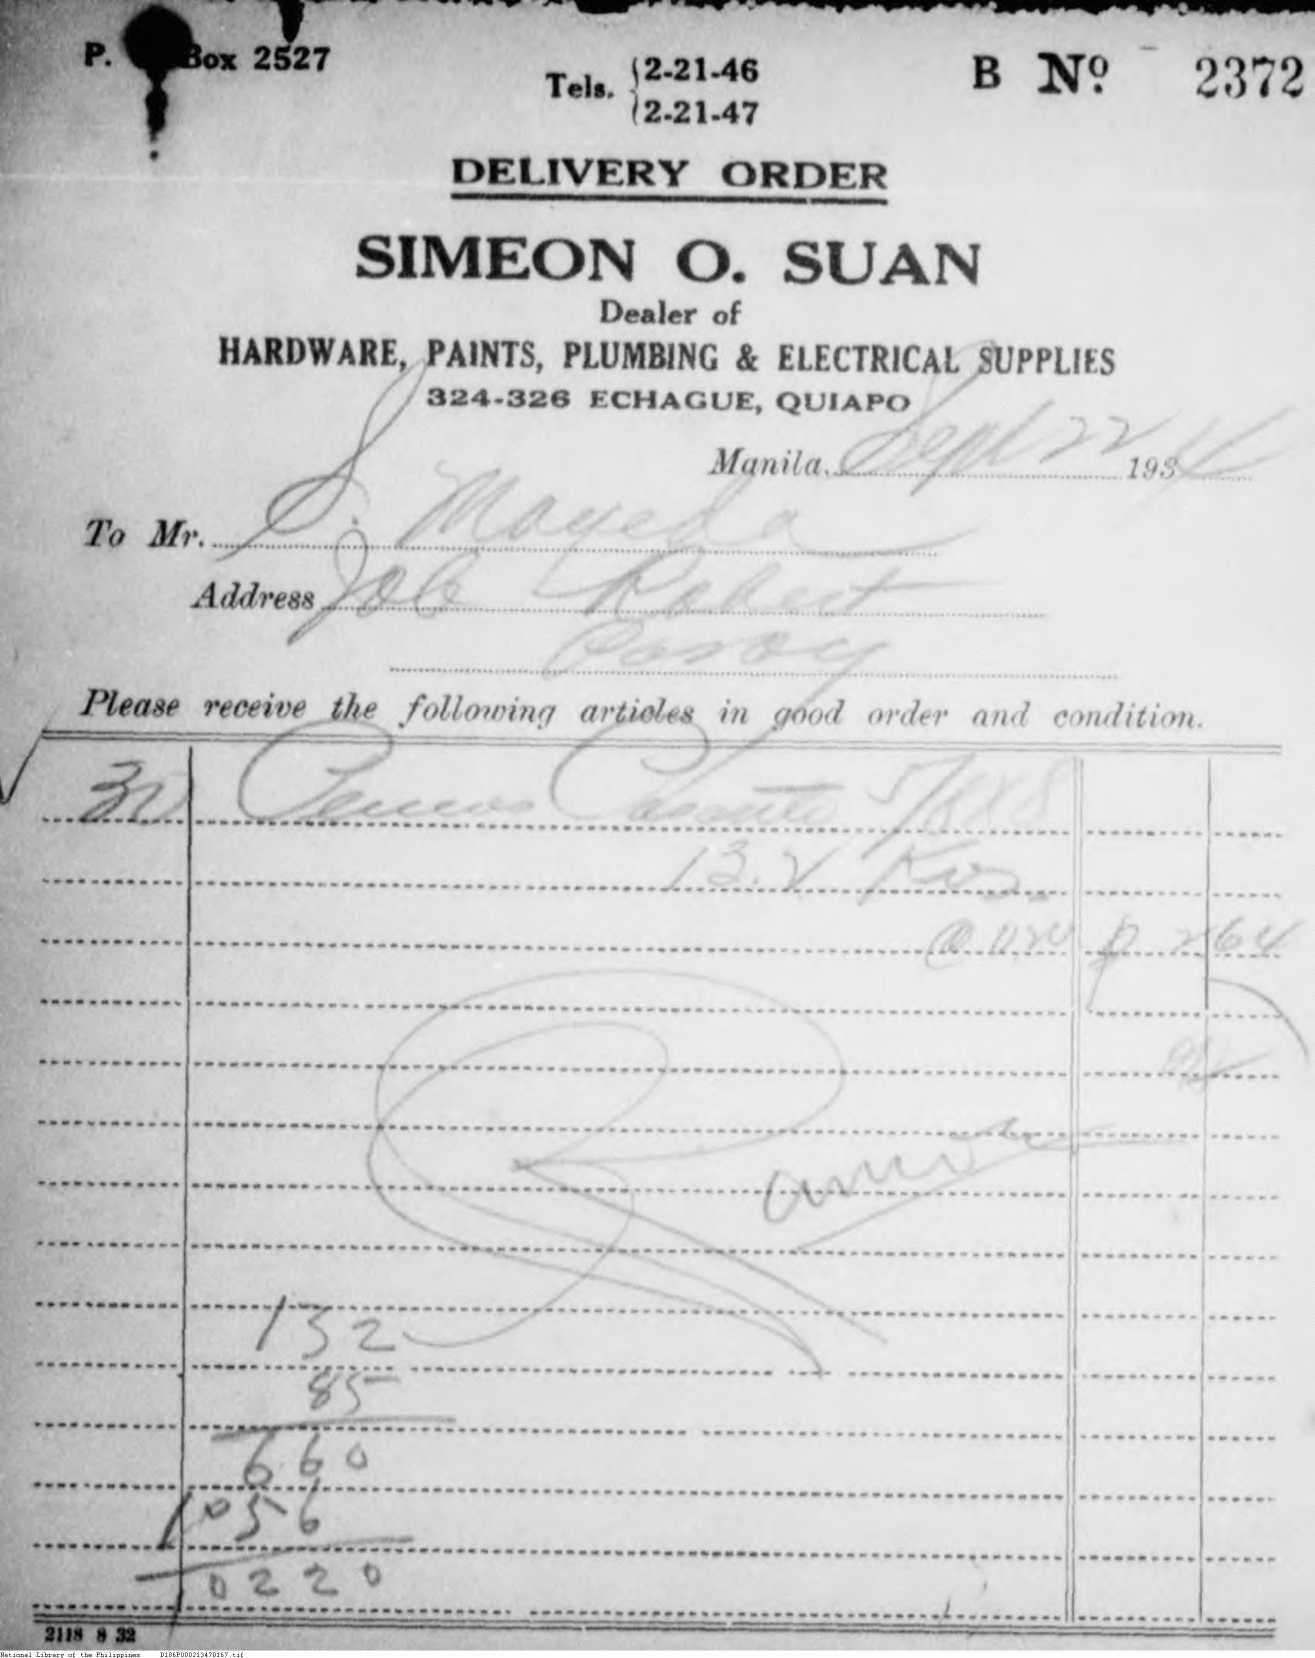 P. Box 2527
Tels. 2-21-46
2-21-47
B Nº 2372
DELIVERY ORDER
SIMEON O. SUAN
Dealer of
HARDWARE, PAINTS, PLUMBING & ELECTRICAL SUPPLIES
324-326 ECHAGUE, QUIAPO
Manila, Sept 22 1934
To Mr. S. Mayeda
Address Job Robert
Please receive the following articles in good order and condition.
5/8 x 8
13.2 Kos.
@ 0.20 ₱ 2 64
132
85
660
1056
2118 8 32
National Library of the Philippines D186P000213470167.tif